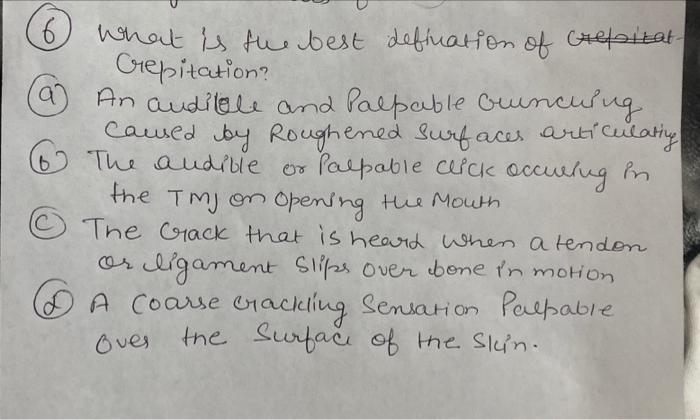 6 What is the best defination of Crepitat-
Crepitation?
a An audible and Palpable Crunching
caused by Roughened Surfaces articulating
b The audible or Palpable click occuring in
the TMJ on opening the Mouth
c The Crack that is heard when a tendon
or ligament slips over bone in motion
d A Coarse crackling Sensation Palpable
Over the Surface of the Skin.